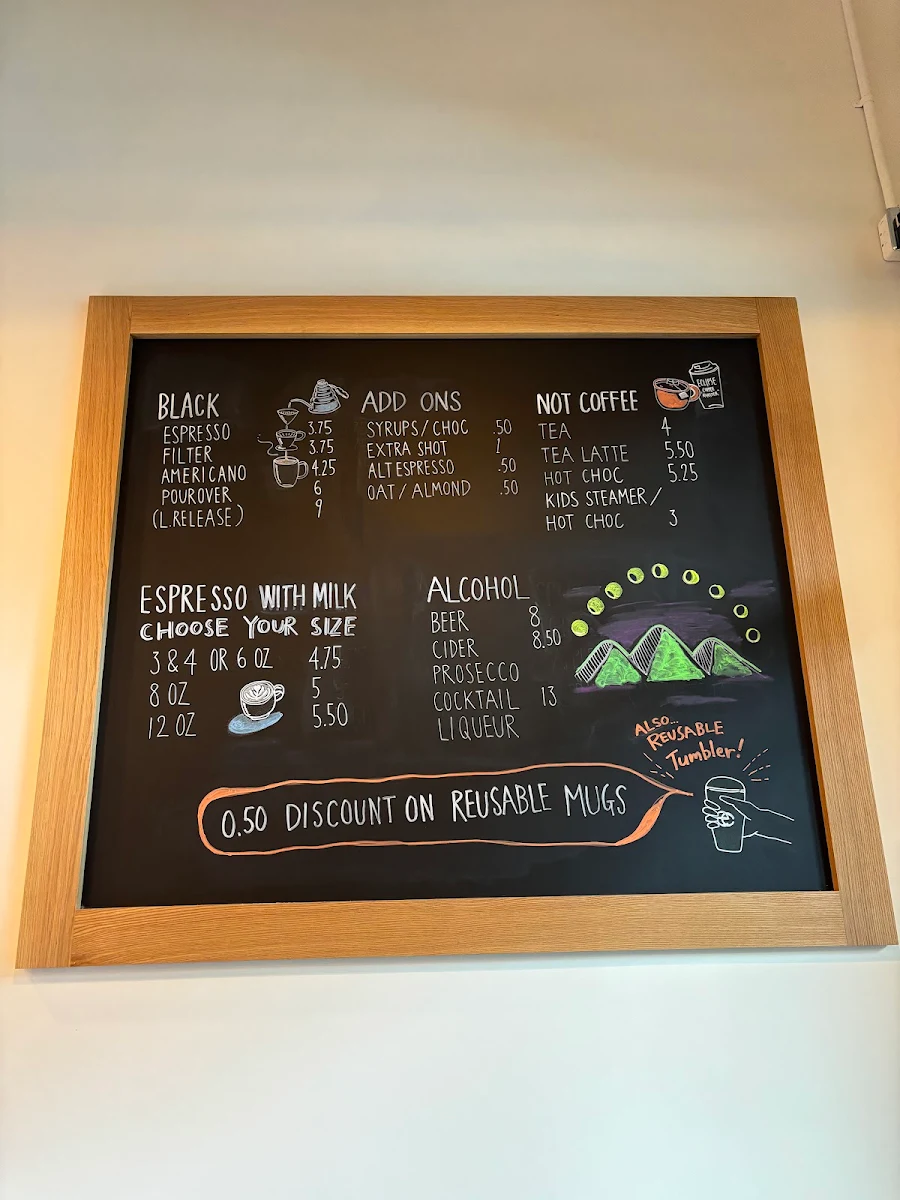 BLACK
ESPRESSO 3.75
FILTER 3.75
AMERICANO 4.25
POUROVER 6
(L.RELEASE) 9
ADD ONS
SYRUPS/CHOC .50
EXTRA SHOT 1
ALT ESPRESSO .50
OAT/ALMOND .50
NOT COFFEE
TEA 4
TEA LATTE 5.50
HOT CHOC 5.25
KIDS STEAMER/
HOT CHOC 3
ECLIPSE
COFFEE
ROASTERS
ESPRESSO WITH MILK
CHOOSE YOUR SIZE
3 & 4 OR 6 OZ 4.75
8 OZ 5
12 OZ 5.50
ALCOHOL
BEER 8
CIDER 8.50
PROSECCO
COCKTAIL 13
LIQUEUR
ALSO...
REUSABLE
Tumbler!
0.50 DISCOUNT ON REUSABLE MUGS